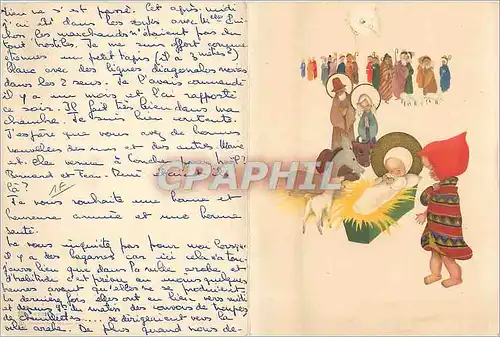 rien ne s'est passé. Cet après-midi
j'ai été dans les souks avec Melle
les marchands n'étaient pas du
tout hostiles. Je me suis offert comme
étrennes un petit tapis (1m à 3 mètres)
blanc avec des lignes diagonales noires
dans les 2 sens. Je l'avais commandé
il y a un mois et l'ai rapporté
ce soir. Il fait très bien dans ma
chambre. Je suis bien contente.
J'espère que vous avez de bonnes
nouvelles des uns et des autres. Marie
est-elle venue à
Bernard et Jean-René étaient-ils
là ?
Je vous souhaite une bonne et
heureuse année et une bonne
santé.
Ne vous inquiétez pas pour moi lorsque
il y a des bagarres car ici cela n'a tou-
jours lieu que dans la ville arabe et
d'habitude c'est prévu au moins quelques
heures avant qu'elles ne se produisent.
La dernière fois elles ont eu lieu vers midi
et depuis 9h du matin des convois de troupes
de chenillettes..... se dirigeaient vers la
ville arabe. De plus quand nous de-
CPARAMA PHIL